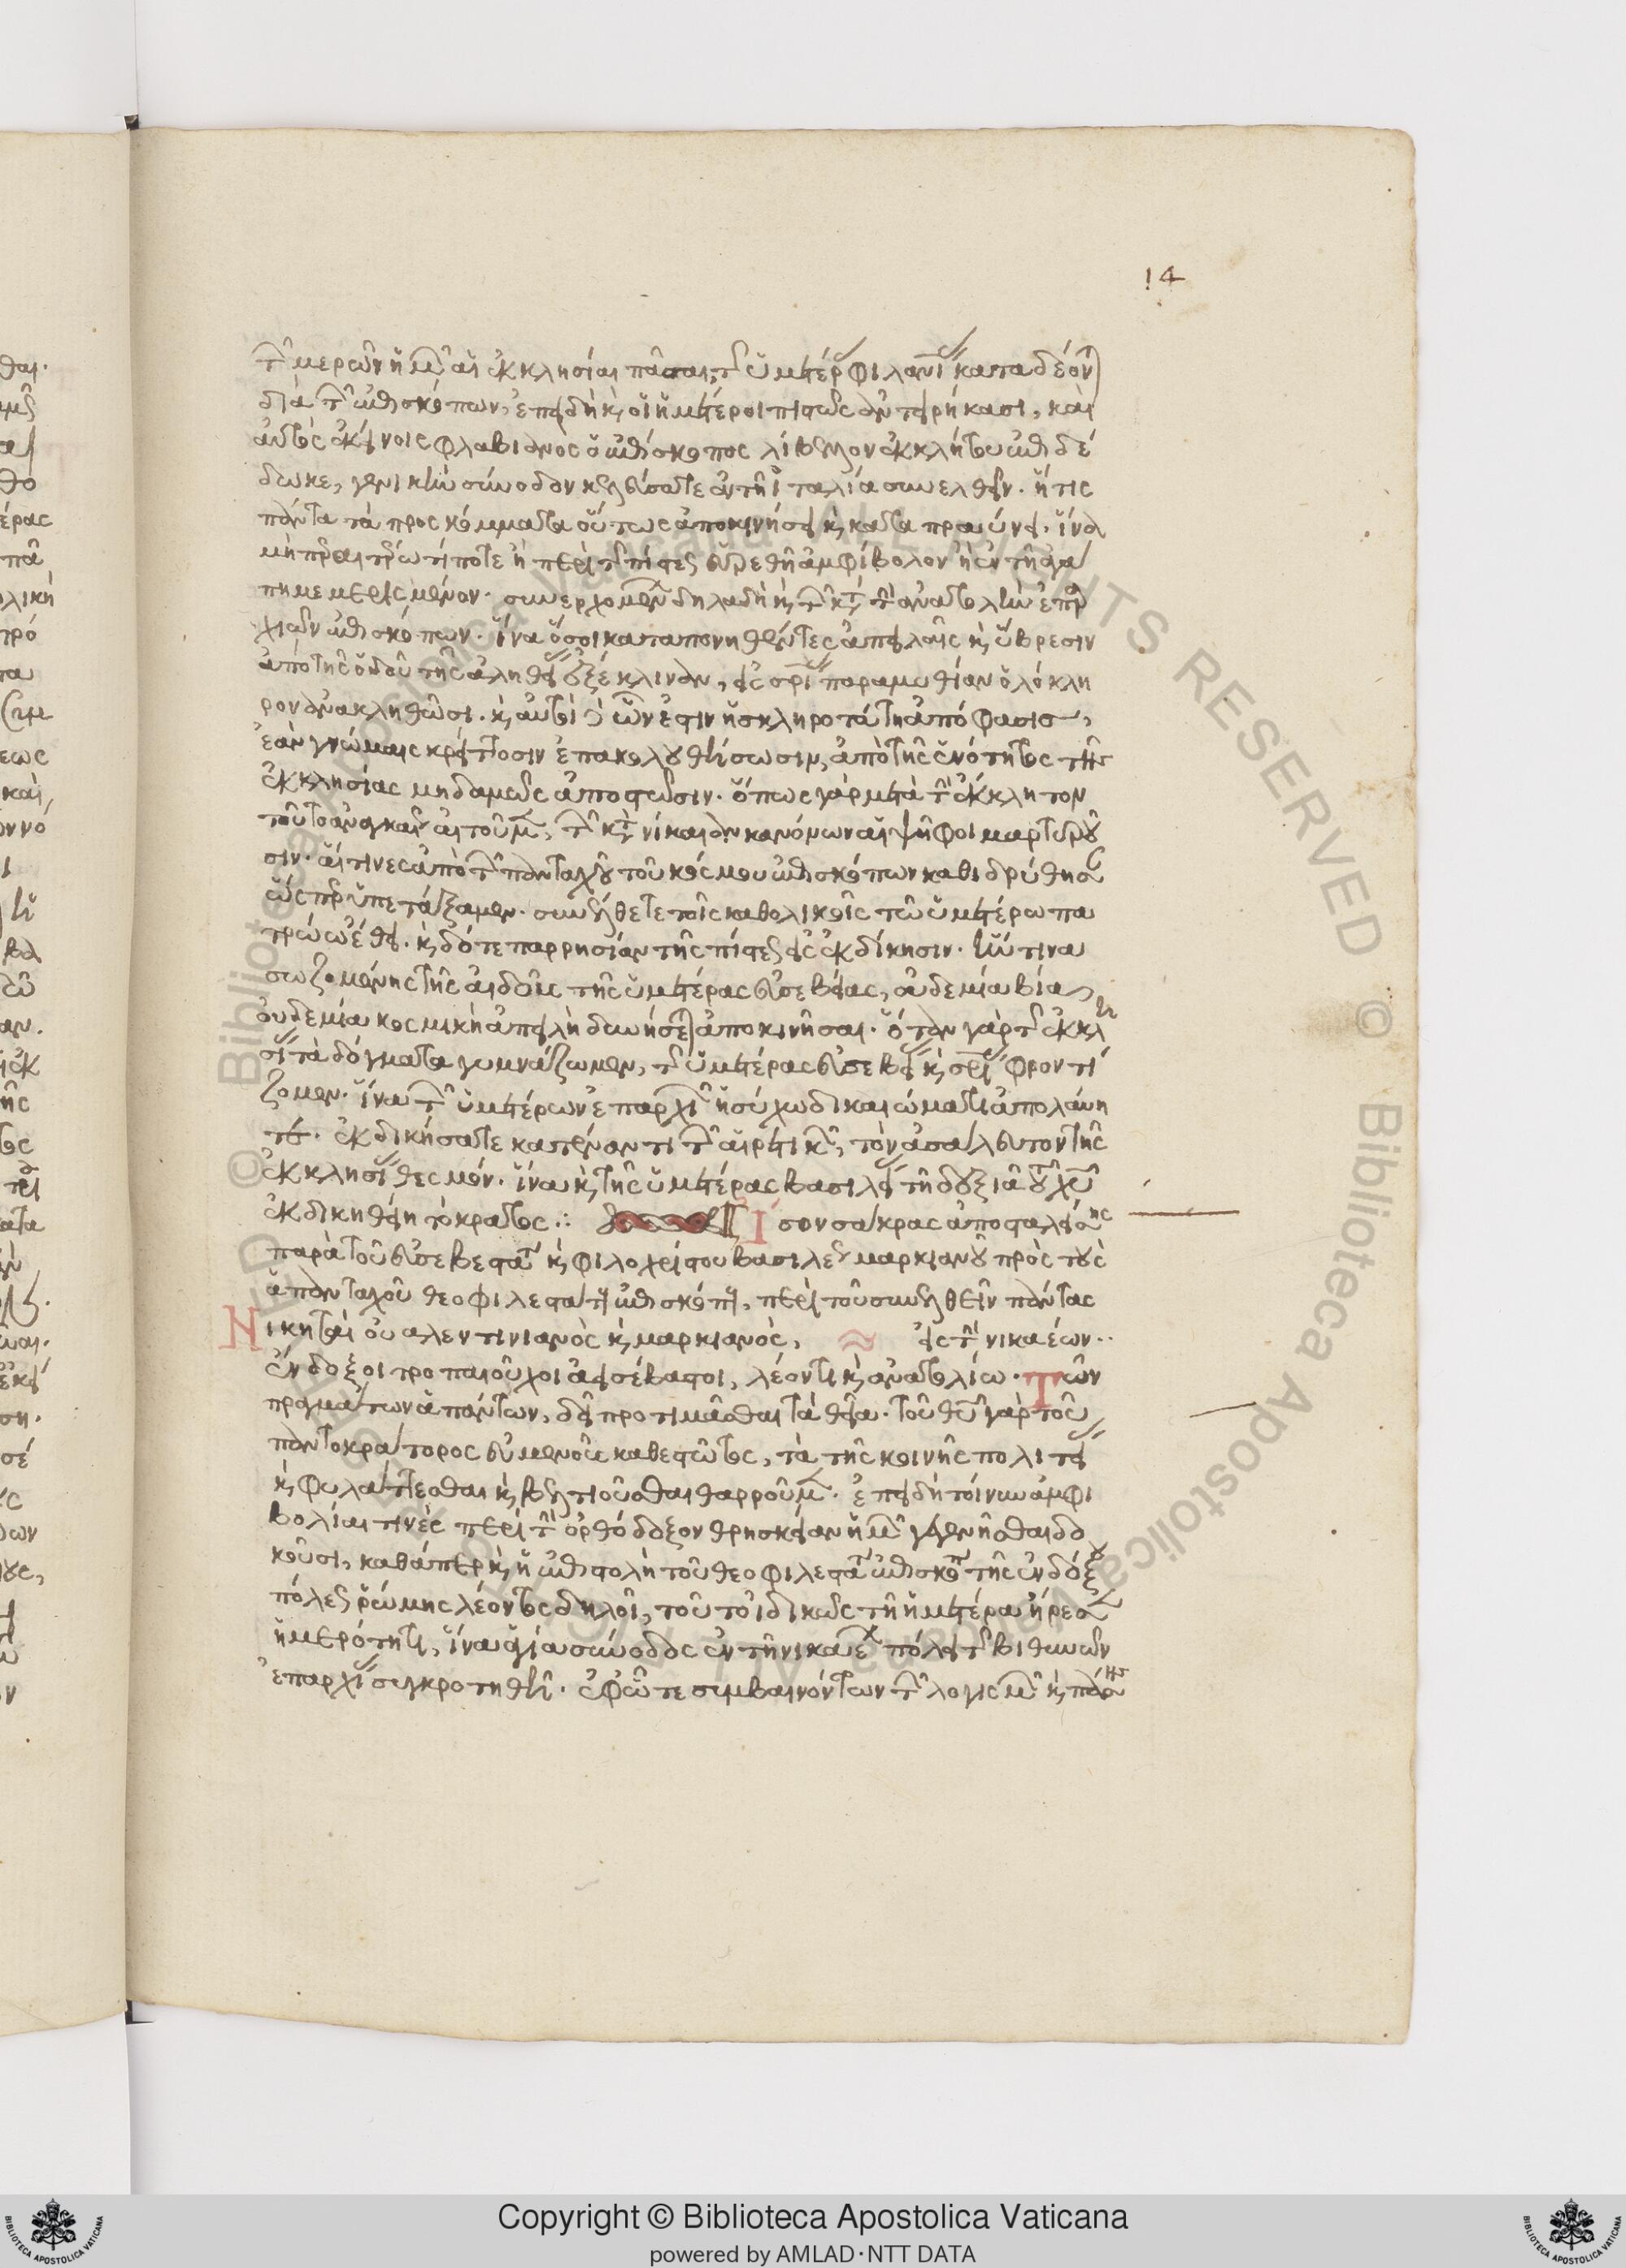 14
τῶν μερῶν ἡμῶν αἱ ἐκκλησίαι πᾶσαι, τῆς ὑμετέρας φιλανθρωπίας καταδέονται
διὰ τῶν ἐπισκόπων, ἐπειδὴ καὶ οἱ ἡμέτεροι πιστῶς ἀντειρήκασι, καὶ
αὐτὸς ἐκείνοις φλαβιανὸς ὁ ἐπίσκοπος λίβελλον ἐκκλήτου ἐπιδέ
δωκε, γενικὴν σύνοδον κελεύσατε ἐν τῇ ἰταλία συνελθεῖν. ἥτις
πάντα τὰ προσκόμματα οὕτως ἀποκινήσει καὶ καταπραΰνει. ἵνα
μὴ περαιτέρω τί ποτε ἢ περὶ τῆς πίστεως εὑρεθῆ ἀμφίβολον ἢ ἐν τῇ ἀγά
πη μεμερισμένον. συνερχομένων δηλαδὴ καὶ τῶν κατὰ τὴν ἀνατολὴν ἐπαρ
χιῶν ἐπισκόπων. ἵνα ὅσοι καταπονηθέντες ἀπειλαῖς καὶ ὕβρεσιν
ἀπὸ τῆς ὁδοῦ τῆς ἀληθείας ἐξέκλιναν, εἰς σωτηρίας παραμυθίαν ὁλόκλη
ρον ἀνακληθῶσι. καὶ αὐτοὶ δὲ ὧν ἐστιν ἡ σκληροτάτη ἀπόφασις,
ἐὰν γνώμαις κρείττοσιν ἐπακολουθήσωσιν, ἀπὸ τῆς ἑνότητος τῆς
ἐκκλησίας μηδαμῶς ἀποστῶσιν. ὅπως γὰρ μετὰ τὴν ἔκκλητον
τοῦτο ἀναγκαίως αἰτοῦμεν, τῶν κατὰ νίκαιαν κανόνων αἱ ψῆφοι μαρτυροῦ
σιν. αἵτινες ἀπὸ τῶν πανταχοῦ τοῦ κόσμου ἐπισκόπων καθιδρύθησαν
ὥσπερ ὑπετάξαμεν. συνέλθετε τοῖς καθολικοῖς τῶ ὑμετέρω πα
τρώω ἔθει. καὶ δότε παρρησίαν τῆς πίστεως εἰς ἐκδίκησιν. ἥντινα
σωζομένης τῆς αἰδοῦς τῆς ὑμετέρας εὐσεβείας, οὐδεμία βία,
οὐδεμία κοσμικὴ ἀπειλὴ δυνήσεται ἀποκινῆσαι. ὅταν γὰρ τῆς ἐκκλη
σίας τὰ δόγματα γυμνάζωμεν, τῆς ὑμετέρας εὐσεβείας καὶ σωτηρίας φροντί
ζομεν. ἵνα τῶν ὑμετέρων ἐπαρχιῶν ἡσύχω δικαιώματι ἀπολαύη
τε. ἐκδικήσατε κατέναντι τῶν αἱρετικῶν, τὸν ἀσάλευτον τῆς
ἐκκλησίας θεσμόν. ἵνα καὶ τῆς ὑμετέρας βασιλείας τῇ δεξιᾶ τοῦ χῦ
ἐκδικηθείη τὸ κράτος.: Ἴσον σάκρας ἀποσταλείσης
παρὰ τοῦ εὐσεβεστάτου καὶ φιλοχρίστου βασιλέως μαρκιανοῦ πρὸς τοὺς
ἁπανταχοῦ θεοφιλεστάτους ἐπισκόπους, περὶ τοῦ συνελθεῖν πάντας
Νικηταὶ οὐαλεντινιανὸς καὶ μαρκιανὸς, εἰς τὴν νικαέων..
ἔνδοξοι τροπαιοῦχοι ἀεισέβαστοι, λέοντι καὶ ἀνατολίω. Τῶν
πραγμάτων ἁπάντων, δεῖ προτιμᾶσθαι τὰ θεῖα. τοῦ θῦ γὰρ τοῦ
παντοκράτορος εὐμενοῦς καθεστῶτος, τὰ τῆς κοινῆς πολιτείας
καὶ φυλάττεσθαι καὶ βελτιοῦσθαι θαρροῦμεν. ἐπειδὴ τοίνυν ἀμφι
βολίαι τινὲς περὶ τὴν ὀρθόδοξον θρησκείαν ἡμῶν γεγενῆσθαι δο
κοῦσι, καθάπερ καὶ ἡ ἐπιστολὴ τοῦ θεοφιλεστάτου ἐπισκόπου τῆς ἐνδόξου
πόλεως ῥώμης λέοντος δηλοῖ, τοῦτο ἰδικῶς τῇ ἡμετέρα ἤρεσεν
ἡμερότητι, ἵνα ἁγία σύνοδος ἐν τῇ νικαέων πόλει τῆς βιθυνῶν
ἐπαρχίας συγκροτηθῆ. ἐφ' ᾧ τε συμβαινόντων τῶν λογισμῶν καὶ πάσης